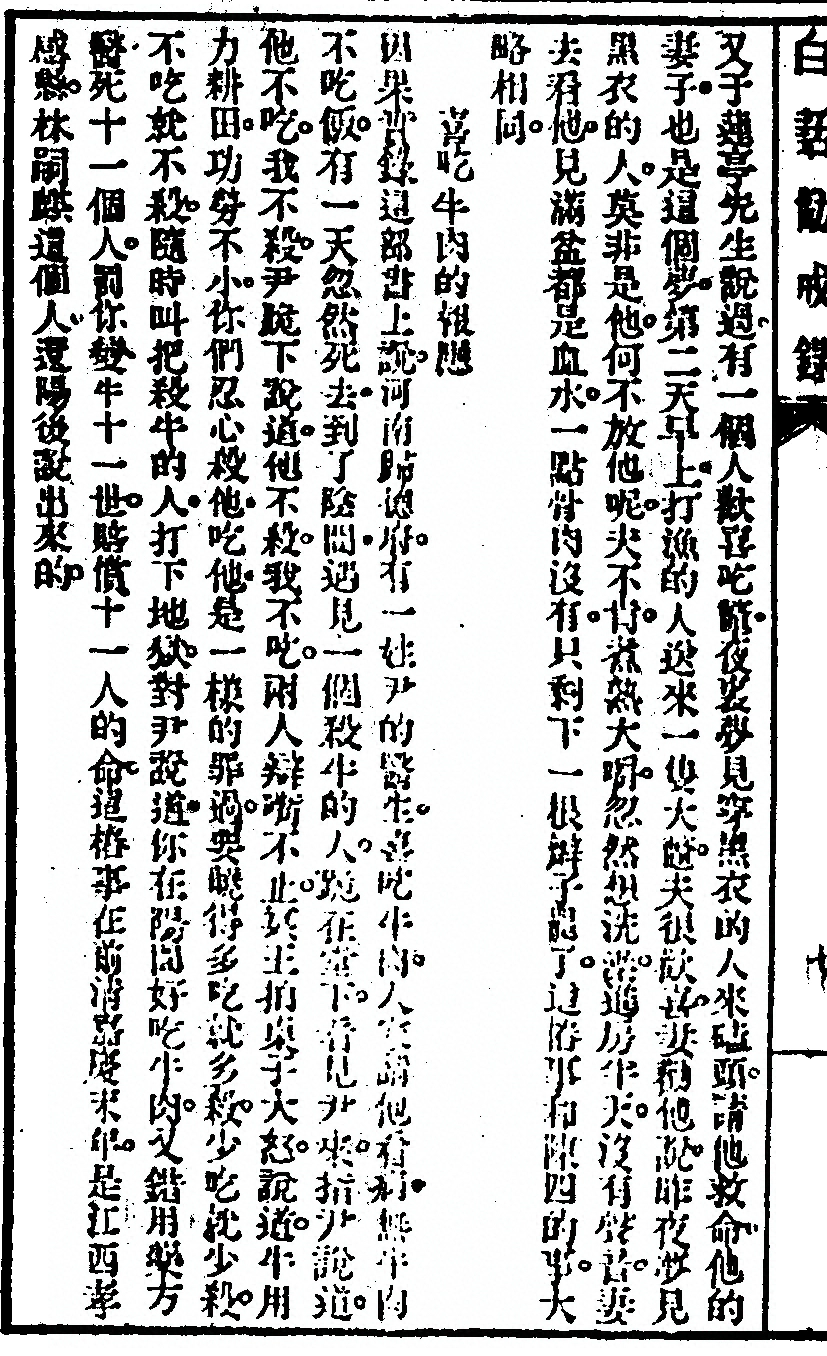 白話勸戒錄
又于蓮亭先生說過有一個人歡喜吃鼈夜裏夢見穿黑衣的人來磕頭請他救命他的
妻子也是這個夢第二天早上打漁的人送來一隻大鼈夫很歡喜妻勸他說昨夜夢見
黑衣的人莫非是他何不放他呢夫不肯煮熟大嚼忽然想洗澡進房半天沒有聲音妻
去看他見滿盆都是血水一點骨肉沒有只剩下一根辮子罷了這樁事和陳四的事大
略相同
喜吃牛肉的報應
因果實錄這部書上說河南歸德府有一姓尹的醫生喜吃牛肉人家請他看病無牛肉
不吃飯有一天忽然死去到了陰間遇見一個殺牛的人跪在堂下看見尹來指尹說道
他不吃我不殺尹跪下說道他不殺我不吃兩人辯論不止冥王拍桌子大怒說道牛用
力耕田功勞不小你們忍心殺他吃他是一樣的罪過要曉得多吃就多殺少吃就少殺
不吃就不殺隨時叫把殺牛的人打下地獄對尹說道你在陽間好吃牛肉又錯用藥方
醫死十一個人罰你變牛十一世賠償十一人的命這樁事在前清嘉慶末年是江西孝
感縣林嗣麒這個人還陽後說出來的